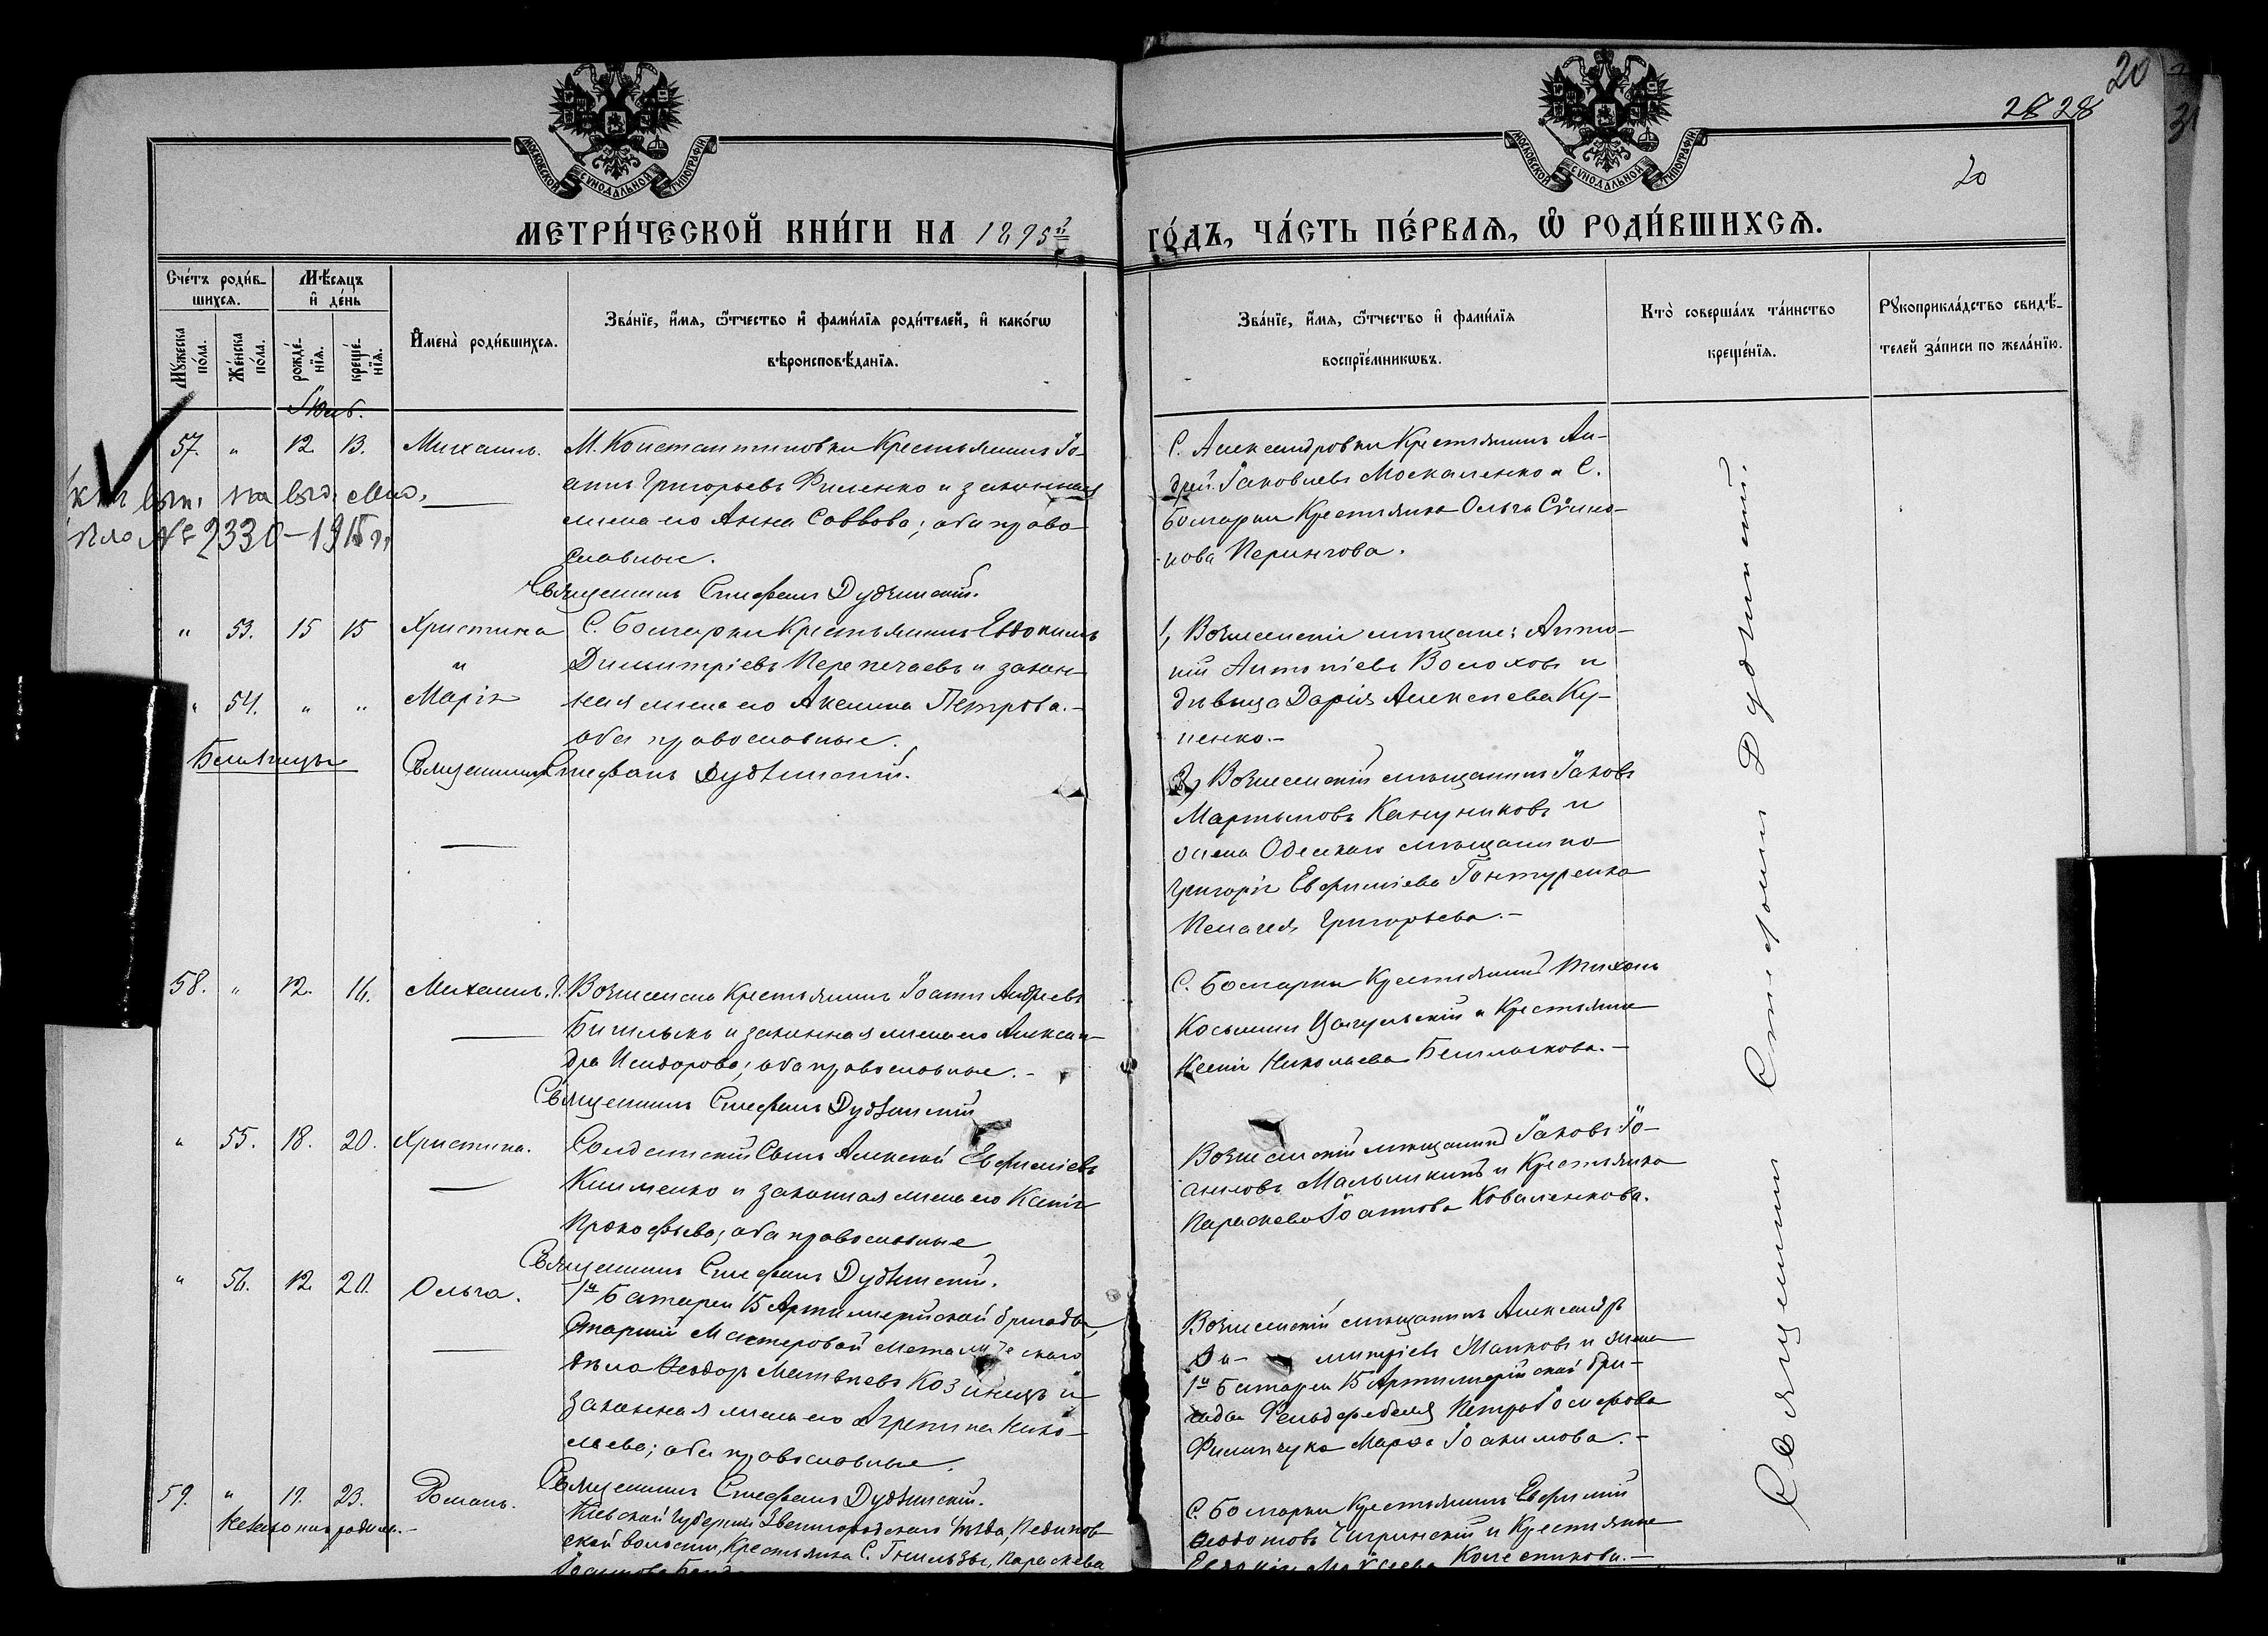 20
28 28
3
20
МОСКОВСКОЙ СѴНОДАЛЬНОЙ ТИПОГРАФІИ
МОСКОВСКОЙ СѴНОДАЛЬНОЙ ТИПОГРАФІИ
МЕТРИ́ЧЕСКОЙ КНИ́ГИ НА 1895й
ГО́ДЪ, ЧА́СТЬ ПЕ́РВАѦ, Ѽ РОДИ́ВШИХСѦ.
Сче́тъ роди́в-
шихсѧ.
Мѣ́сѧцъ
и҆ де́нь
Мꙋ́жеска по́ла.
Же́нска по́ла.
рожде́-нїѧ.
креще́-нїѧ.
И҆мена̀ роди́вшихсѧ.
Зва́нїе, и҆́мѧ, ѻ҆́тчество и҆ фами́лїѧ роди́телей, и҆ како́гѡ
вѣроисповѣ́данїѧ.
Зва́нїе, и҆́мѧ, ѻ҆́тчество и҆ фами́лїѧ
воспрїе́мникѡвъ.
Кто̀ соверша́лъ та́инство
креще́нїѧ.
Рꙋкоприкла́дство свидѣ́-
телей за́писи по жела́нїю.
Іюль.
57. " 12. 13. Михаилъ. М. Константиновки Крестьянинъ Іо-
аннъ Григорьевъ Филенко и законная
жена его Анна Саввова; оба право-
славные.
№ 2330-1915 г.
Священникъ Стефанъ Дудчинскій.
С. Александровки Крестьянинъ Ан-
дрей Іаковлевъ Москаленко и С.
Болгарки Крестьянка Ольга
" 53. 15 15 Христина С. Болгарки Крестьянинъ Евдокимъ
и Димитріевъ Перепечаевъ и закон-
" 54. " " Марія ная жена его Акилина Петрова.-
оба православные.
Близнецы Священникъ Стефанъ Дудчинскій.
1, Вознесенскіе мещане: Анто-
ній Антоніевъ Волоховъ и
дѣвица Дарія Алексѣева Ку-
ценко.-
2, Вознесенскій мѣщанинъ Іаковъ
Мартыновъ Канунниковъ и
жена Одесскаго мѣщанина
Григорія Евфиміева Гонтуренка
Пелагея Григорьева.-
58. " 12. 16. Михаилъ. Г. Вознесенска Крестьянинъ Іоаннъ Андреевъ
и законная жена его Алексан-
дра Исидорова; оба православные.-
Священникъ Стефанъ Дудчинскій
С. Болгарки Крестьянинъ Тихонъ
Косьминъ и Крестьянка
Ксенія Николаева
" 55. 18. 20. Христина. Солдатскій Сынъ Алексѣй Евфиміевъ
Клименко и законная жена его Капи-
Прокофьева; оба православные
Священникъ Стефанъ Дудчинскій.
Вознесенскій мѣщанинъ Іаковъ Іо-
анновъ Малышкинъ и Крестьянка
Параскева Іоаннова Коваленкова.
" 56. 12. 20. Ольга. 1й Батареи 15 Артиллерійской бригады,
Старшій Мастеровой Металическаго
дѣла Ѳеодоръ Матвѣевъ Козинецъ и
законная жена его Агрепина Нико-
лаева; оба православные.
Священникъ Стефанъ Дудчинскій.
Вознесенскій мѣщанинъ Александръ
Ди- митріевъ Малковъ и жена
1й Батареи 15 Артиллерійской бри-
гады Фельдфебеля Петра Іосифова
Филипчука Марѳа Іоакимова.-
59. " 19. 23. Романъ. Кіевской Губерніи Звенигородскаго Уѣзда,
Незаконнорожден.- ской волости, Крестьянка С. Гнильцы, Параскева
С. Болгарки Крестьянинъ Евфимій
Ѳеодотовъ Чигринскій и Крестьянка
Колесникова.-
Священникъ Стефанъ Дудчинскій.